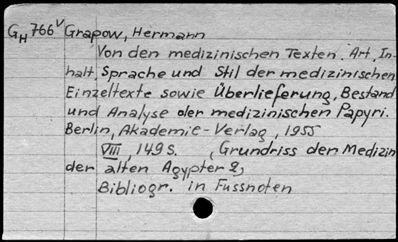 GH 766V Grapow, Hermann
Von den medizinischen Texten. Art, In-
halt, Sprache und Stil der medizinischen
Einzeltexte sowie Überlieferung, Bestand
und Analyse der medizinischen Papyri.
Berlin, Akademie-Verlag, 1955
VIII, 149 S. , Grundriss den Medizin
der alten Agypter 2,
Bibliogr. in Fussnoten